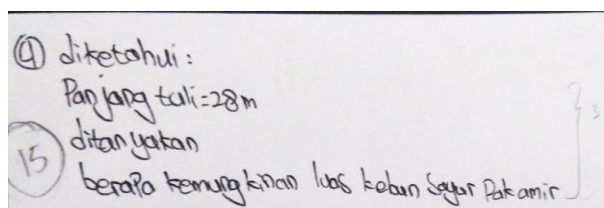 ④ diketahui:
Panjang tali=28m
ditanyakan
15
berapa kemungkinan luas kebun sayur Pak amir
3